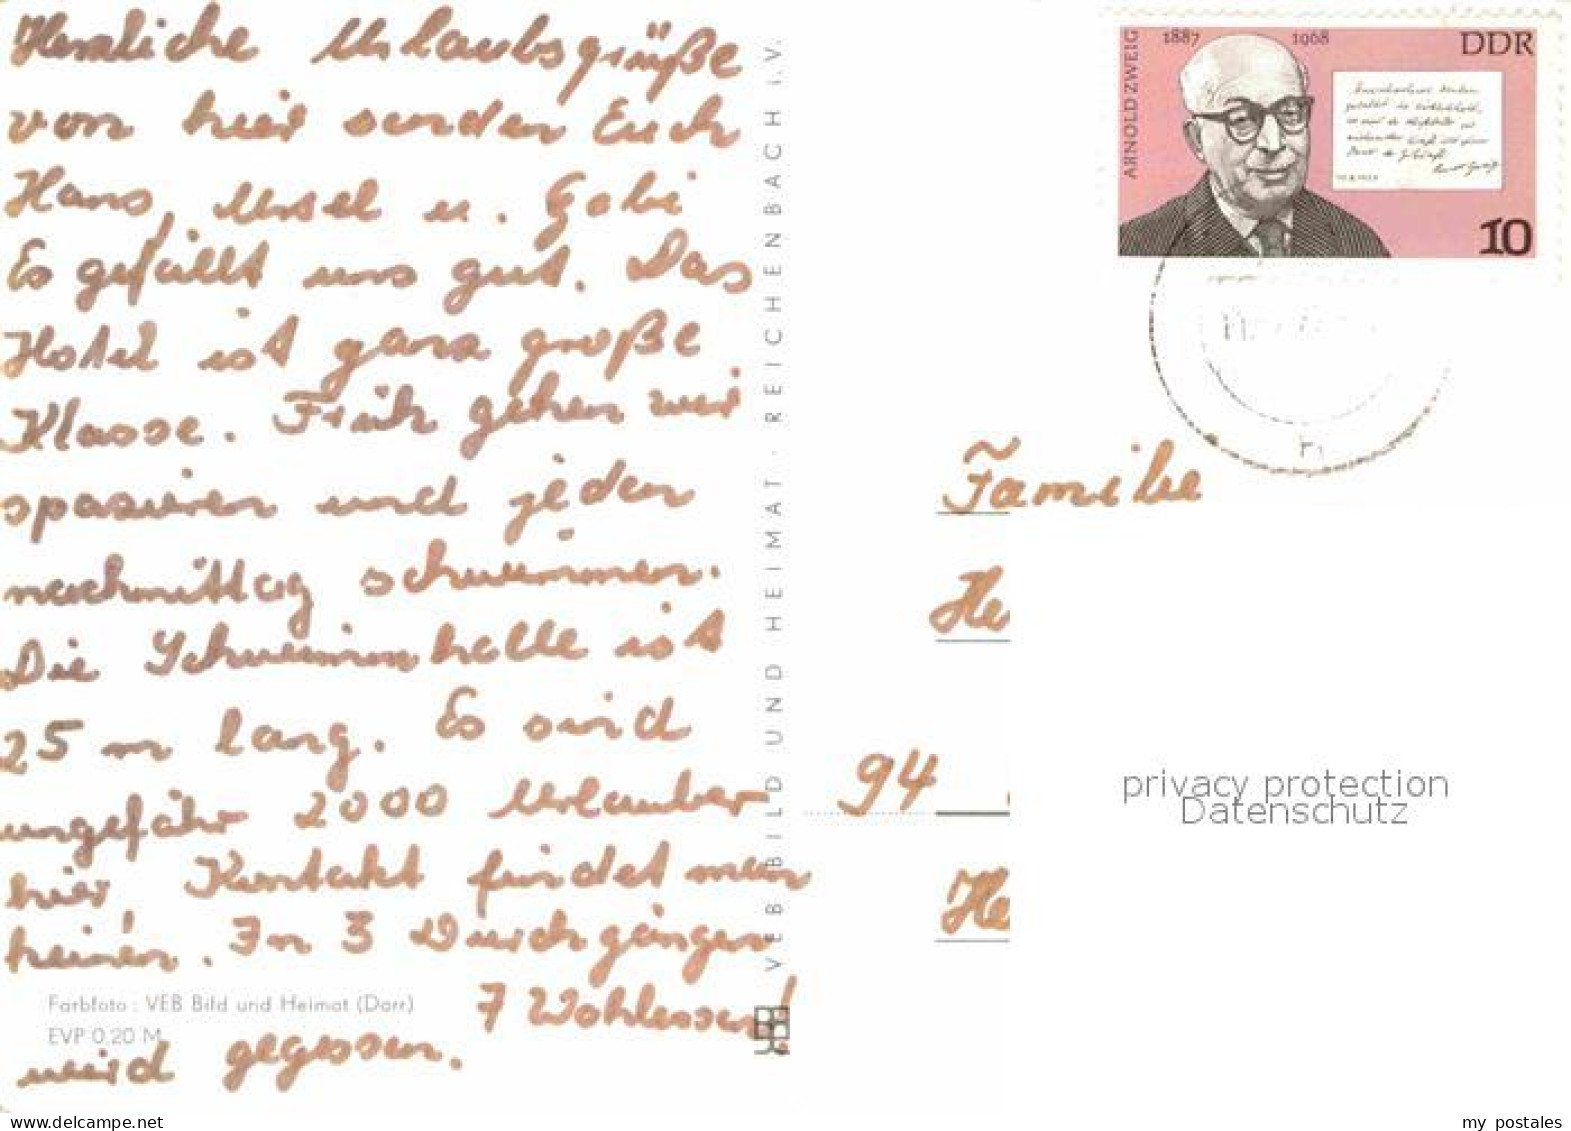 Herzliche Urlaubsgrüße
von hier senden Euch
Hans, Ursel u. Gabi
Es gefällt uns gut. Das
Hotel ist ganz große
Klasse. Früh gehen wir
spazieren und jeden
nachmittag schwimmen.
Die Schwimmhalle ist
25 m lang. Es sind
ungefähr 2000 Urlauber
hier, Kontakt findet man
keinen. In 3 Durchgängen
wird gegessen. 7 Wahlessen!
Farbfoto: VEB Bild und Heimat (Darr)
EVP 0,20 M
VEB BILD UND HEIMAT · REICHENBACH I. V.
ARNOLD ZWEIG
1887 1968
DDR
10
Familie
He
94
He
privacy protection
Datenschutz
www.delcampe.net
my_postales